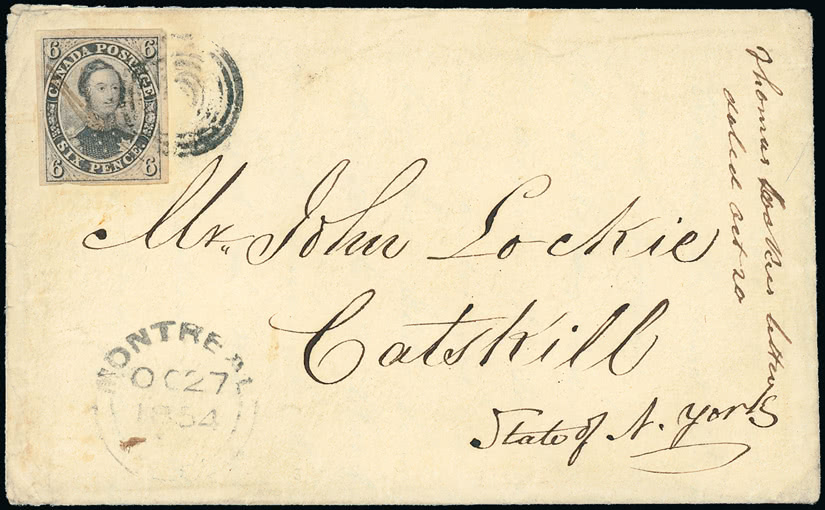 6 6
CANADA POSTAGE
SIX PENCE.
6 6
Mr. John Lockie
Catskill
State of N. York
MONTREAL
OC 27
1854
Thomas letter
dated Oct 20